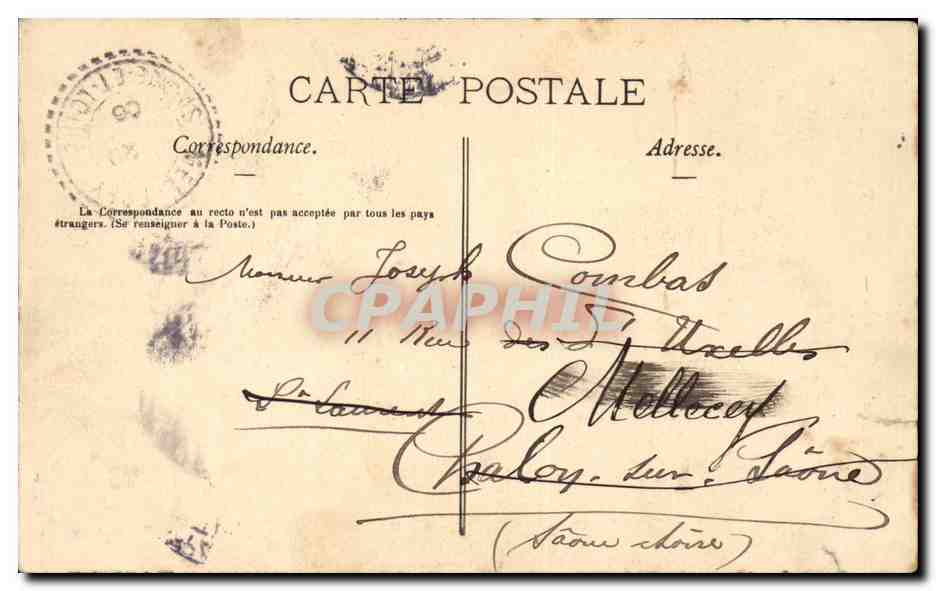 CARTE POSTALE
Correspondance.
Adresse.
La Correspondance au recto n'est pas acceptée par tous les pays
étrangers. (Se renseigner à la Poste.)
Monsieur Joseph Combas
CPAPHIL
11 Rue des d'Uxelles
St Laurent Mellecey
Chalon-sur-Saône
(Saône & Loire)